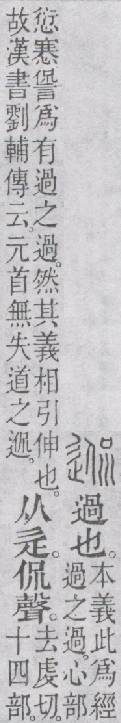 䢭
過也。
本義此爲經
過之過。心部
愆㥶諐爲有過之過。然其義相引伸也。
故漢書劉輔傳云。元首無失道之䢭。
从辵。侃聲。
去虔切。
十四部。